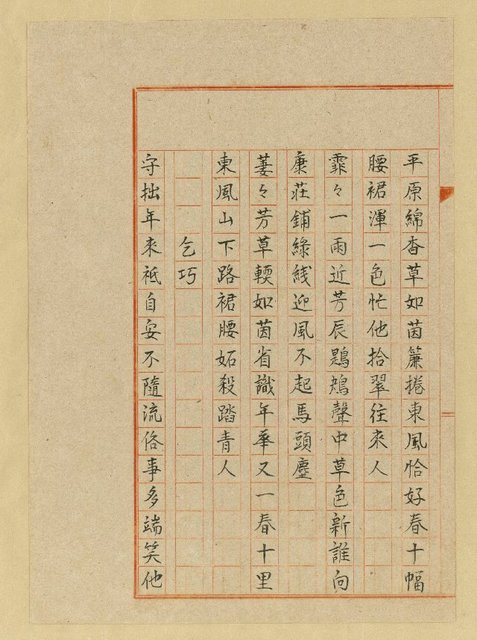 平原綿杳草如茵簾捲東風恰好春十幅
腰裙渾一色忙他拾翠往來人
霏々一雨近芳辰鶗鴂聲中草色新誰向
康莊鋪綠綫迎風不起馬頭塵
萋々芳草輭如茵省識年華又一春十里
東風山下路裙腰妬殺踏青人
乞巧
守拙年來祇自安不隨流俗事多端笑他